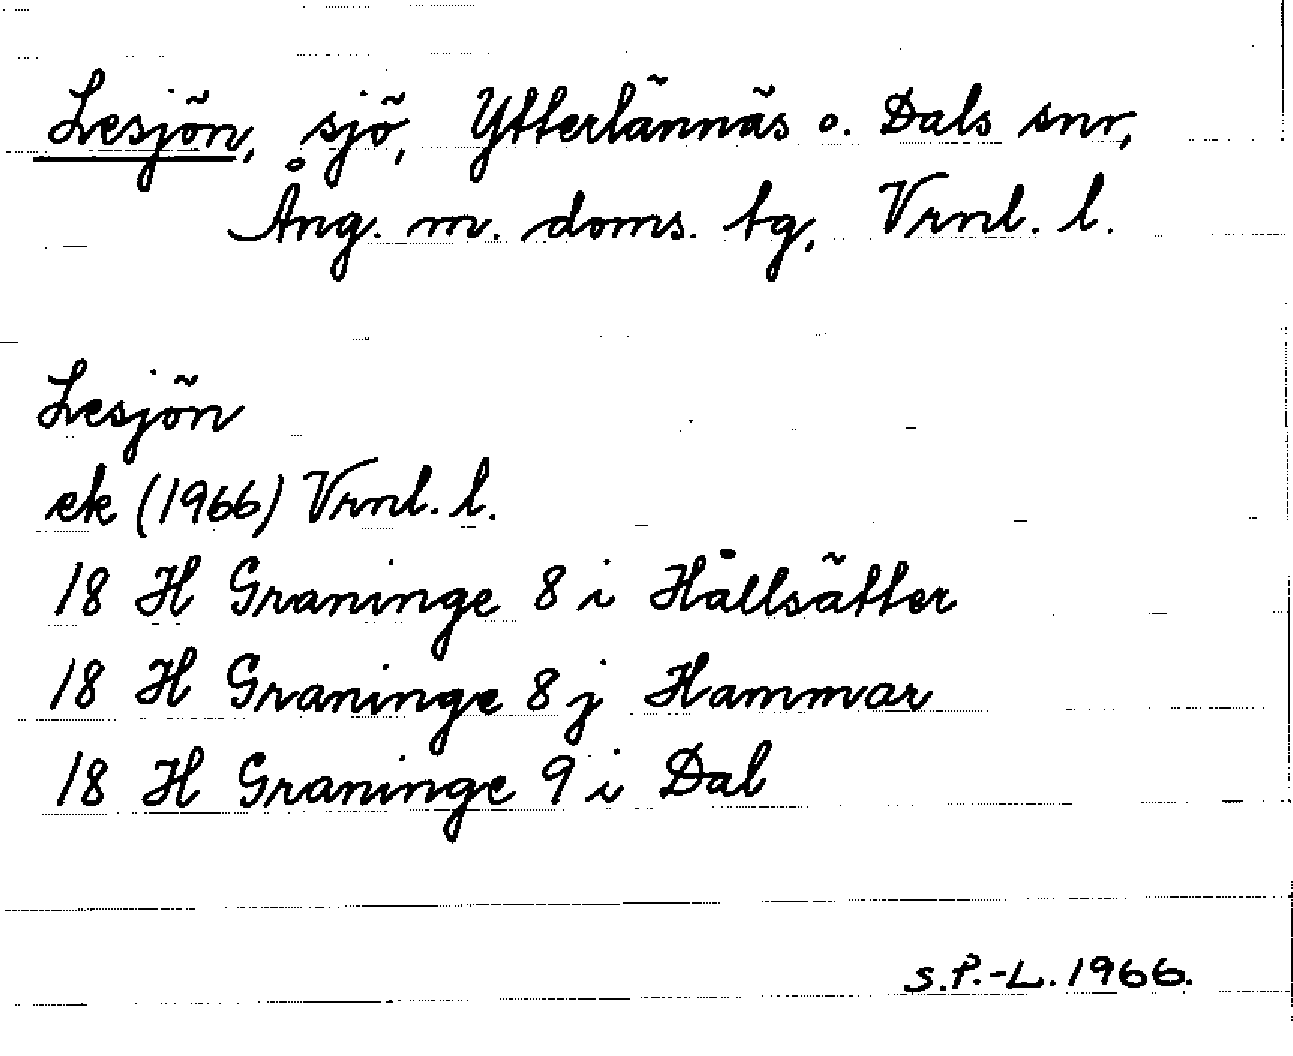 Lesjön, sjö, Ytterlännäs o. Dals snr,
Ång. m. doms. tg, Vrnl. l.
Lesjön
ek (1966) Vrnl. l.
18 H Graninge 8 i Hällsätter
18 H Graninge 8 j Hammar
18 H Graninge 9 i Dal
S.P.-L. 1966.